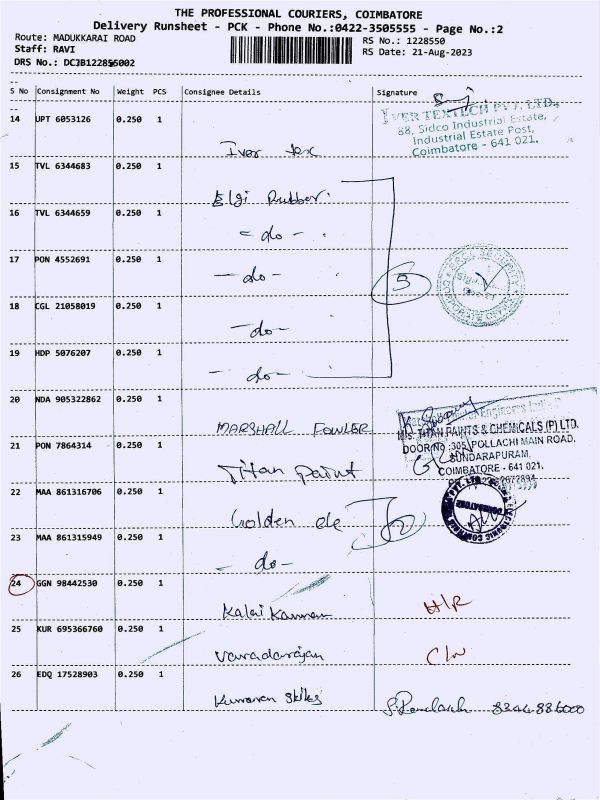 THE PROFESSIONAL COURIERS, COIMBATORE
Delivery Runsheet - PCK - Phone No.:0422-3505555 - Page No.:2
Route: MADUKKARAI ROAD
RS No.: 1228550
Staff: RAVI
RS Date: 21-Aug-2023
DRS No.: DCJB122855002
S No Consignment No Weight PCS Consignee Details Signature
14 UPT 6053126 0.250 1
IVER TEXTECH PVT. LTD.,
88, Sidco Industrial Estate,
Industrial Estate Post,
Coimbatore - 641 021.
Iver tex
15 TVL 6344683 0.250 1
Elgi Rubber
16 TVL 6344659 0.250 1
- do -
17 PON 4552691 0.250 1
- do -
5
18 CGL 21058019 0.250 1
- do -
19 HDP 5076207 0.250 1
- do -
20 NDA 905322862 0.250 1
MARSHALL FOWLER
M/S. TITAN PAINTS & CHEMICALS (P) LTD.
DOOR NO :305, POLLACHI MAIN ROAD,
SUNDARAPURAM,
COIMBATORE - 641 021.
21 PON 7864314 0.250 1
Titan Paint
22 MAA 861316706 0.250 1
Golden ele
2
COIMBATORE
23 MAA 861315949 0.250 1
- do -
24 GGN 98442530 0.250 1
Kalai Kannan
25 KUR 695366760 0.250 1
Varadarajan
26 EDQ 17528903 0.250 1
Kumaran
8344886000